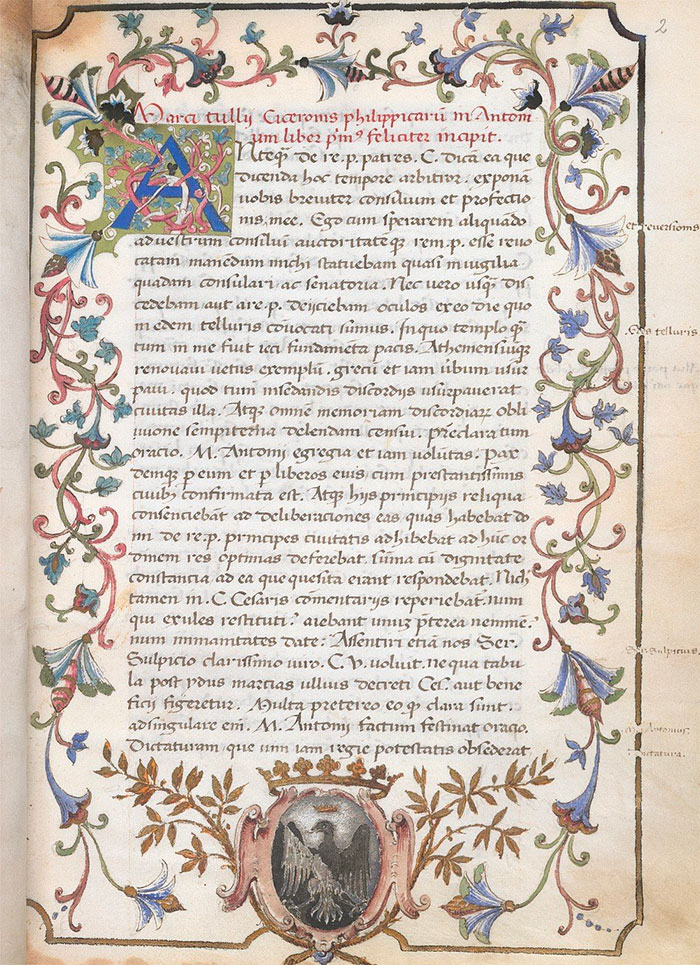 2
Marci tullij Ciceronis philippicarū in Antoni
um liber pm⁹ feliciter incipit.
ANteq de re. p. patres. C. dicā ea que
dicenda hoc tempore arbitror. exponā
vobis breviter consilium et profectio
nis, mee. Ego cum sperarem aliquādo
ad vestrum consiliū auctoritateq rem. p. esse revo
catam manēdum michi statuebam quasi in vigilia
quadam consulari ac senatoria. Nec vero usq dis
cedebam aut a re. p. deijciebam oculos ex eo die quo
in edem telluris cōvocati sumus. In quo templo q
tum in me fuit ieci fundamēta pacis. Atheniensiūq
renovavi vetus exemplū. grecū et iam verbum usur
pavi. quod tum in sedandis discordijs usurpaverat
civitas illa. Atq omnē memoriam discordiaꝝ obli
vione sempiterna delendam censui. Preclara tum
oracio. M. Antonij egregia et iam volūtas. pax
deniq p eum et p liberos eius cum prestantissimis
civib confirmata est. Atq hijs principijs reliqua
consenciebāt ad deliberaciones eas quas habebat do
mi de re. p. principes civitatis adhibebat ad hūc or
dinem res optimas deferebat. sūma cū dignitate
constancia ad ea que quesita erant respondebat. Nich
tamen in. C. Cesaris comentarijs reperiebat. num
qui exules restituti? aiebant unū; pterea neminē.
num immunitates date? Assentiri etiā nos Ser.
Sulpicio clarissimo viro. C. V. voluit. ne qua tabu
la post ydus marcias ullius decreti Ces. aut bene
ficij figeretur. Multa pretereo eo q clara sunt.
ad singulare eni. M. Antonij factum festinat oracio.
Dictaturam que vim iam regie potestatis obsederat
et reversionis
telluris
Ser. Sulpicius.
M. Antonius.
Dictatura.